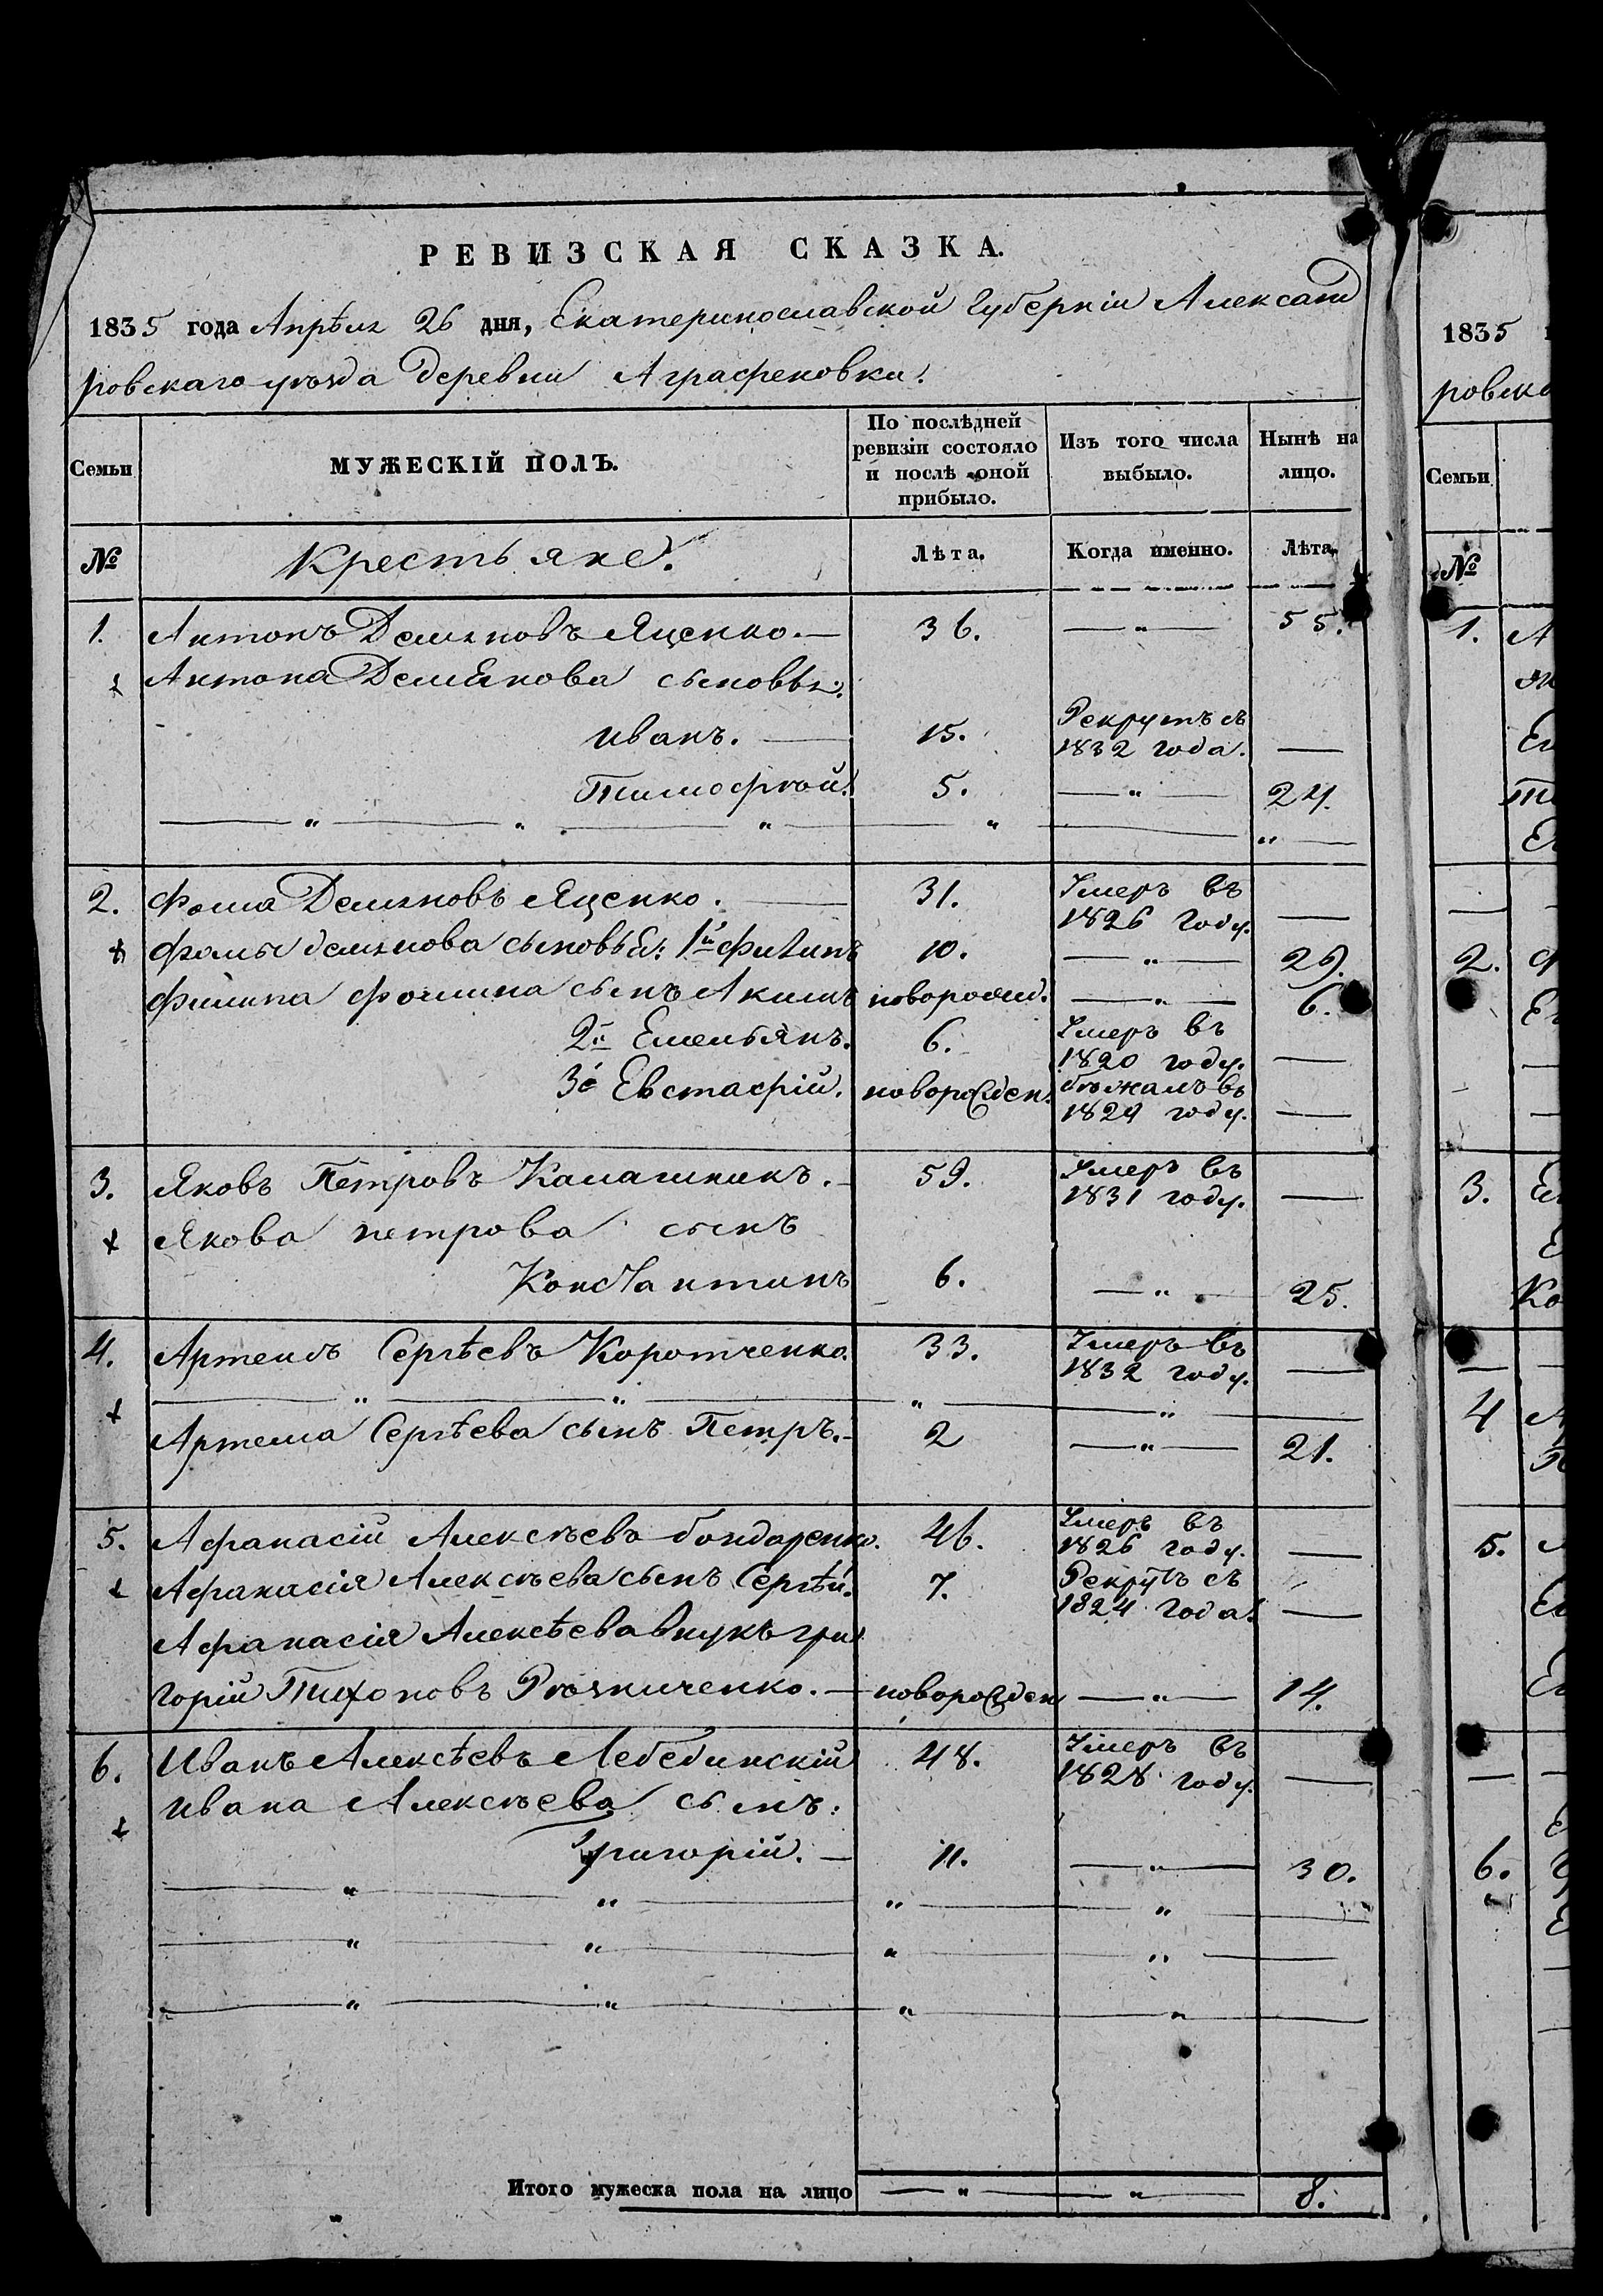 РЕВИЗСКАЯ СКАЗКА.
1835 года Апрѣля 26 дня, Екатеринославской Губерніи Александ
ровскаго уѣзда деревни Аграфеновки.
Семьи
МУЖЕСКІЙ ПОЛЪ.
По послѣдней ревизіи состояло и послѣ оной прибыло.
Изъ того числа выбыло.
Нынѣ на лицо.
№ Крестьяне. Лѣта. Когда именно. Лѣта.
1. Антонъ Демяновъ Яценко. — 36. — „ — 55.
Антона Демянова сыновья:
Иванъ. — 15. Рекрутъ съ 1832 года. —
Тимофѣй. 5. — „ — 24.
2. Фома Демяновъ Яценко. — 31. Умеръ въ 1826 году. —
Фомы демянова сыновья: 1й Филипъ 10. — „ — 29.
Филипа Фомина сынъ Акимъ новорожд. — „ — 6.
2й Емельянъ. 6. Умеръ въ 1820 году. —
3й Евстафій. новорожден. бѣжалъ въ 1829 году. —
3. Яковъ Петровъ Калашникъ. — 59. Умеръ въ 1831 году. —
Якова петрова сынъ
Константинъ 6. — „ — 25.
4. Артемъ Сергѣевъ Коротченко. 33. Умеръ въ 1832 году. —
Артема Сергѣева сынъ Петръ. — 2 — „ — 21.
5. Афанасій Алексѣевъ бондаренко. 46. Умеръ въ 1826 году. —
Афанасія Алексѣева сынъ Сергѣй. 7. Рекрутъ съ 1824 года. —
Афанасія Алексѣева внукъ гри
горій Тихоновъ Рѣзниченко. — новорожден — „ — 14.
6. Иванъ Алексѣевъ Лебединскій 48. Умеръ въ 1828 году. —
Ивана Алексѣева сынъ:
Григорій. — 11. — „ — 30.
Итого мужеска пола на лицо — „ — „ — 8.
1835
ровска
Семьи
№
1.
2.
3.
4
5.
6.